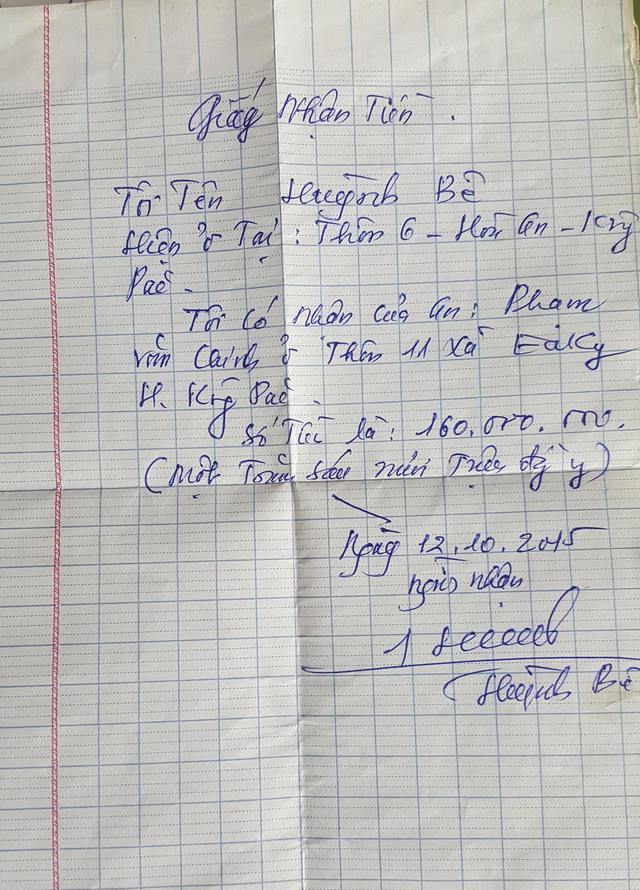 Giấy nhận Tiền.
Tôi Tên Huỳnh Bê
Hiện ở Tại: Thôn 6 - Hòa An - Krông
Pắc -
Tôi có nhận của an: Phạm
văn Cảnh ở Thôn 11 Xã EaKly
H. Krông Pắc -
Số Tiền là: 160.000.000.
(Một Trăm Sáu mươi Triệu đồng y)
Ngày 12.10.2015
người nhận
Huỳnh Bê